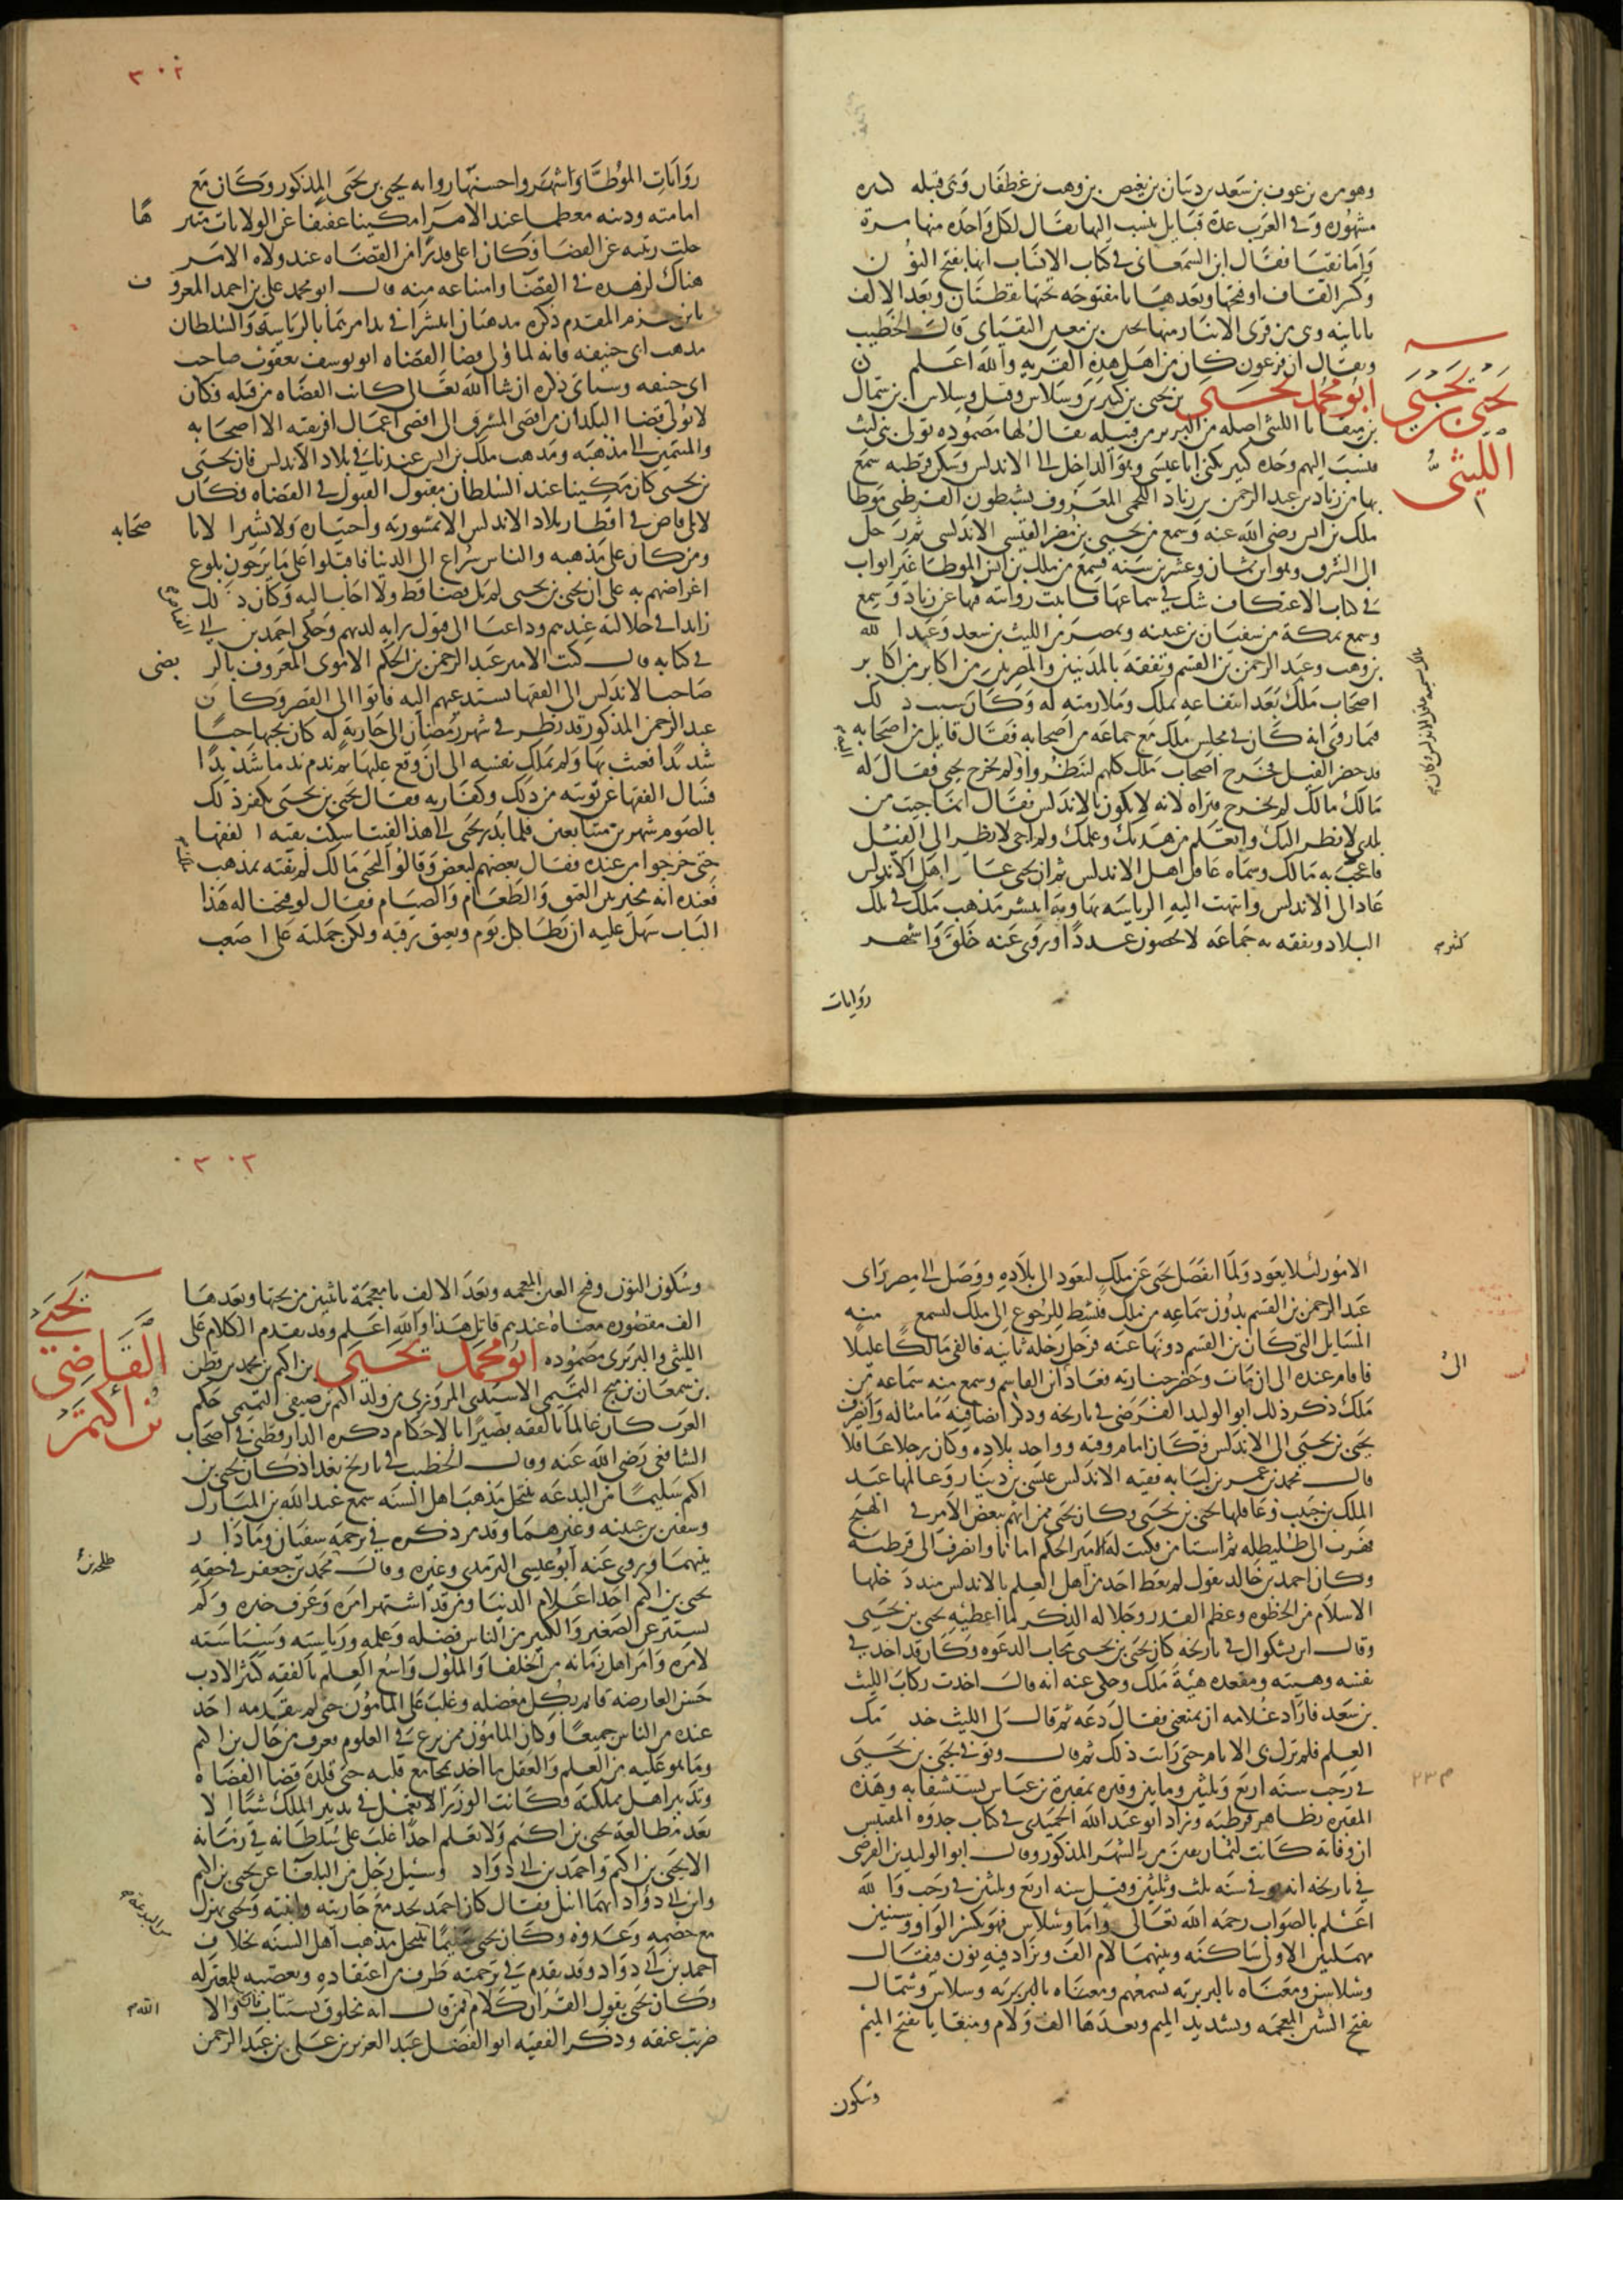 وهو مره بن عوف بن سعد بن ذبيان بن بغيض بن ريث بن غطفان وهى قبيله كبيره
مشهوره وفى العرب عدة قبايل ينسب اليها يقال لكل واحده منها مرة
واما نقيا فقال ابن السمعانى فى كتاب الانساب انها بفتح النون
وكسر القاف او فتحها وبعدها يا مفتوحه تحتها نقطتان وبعد الالف
يا ثانيه وهى من قرى الانبار منها يحيى بن معين النقياى قال الخطيب
ويقال ان فرعون كان من اهل هذه القريه والله اعلم
ابو محمد يحيى بن يحيى بن كثير بن وسلاس وقيل وسلاسن بن شمال
يحيى بن يحيى
الليثى
بن منغايا الليثى اصله من البربر من قبيله يقال لها مصموده تولى بنى ليث
فنسب اليهم وجده كثير يكنى ابا عيسى وهو الداخل الى الاندلس وسكن قرطبه سمع
بها من زياد بن عبد الرحمن بن زياد اللخمى المعروف بشبطون القرطبى موطا
ملك بن انس رضى الله عنه وسمع من يحيى بن مضر القيسى الاندلسى ثم رحل
الى الشرق وهو ابن ثمان وعشرين سنه فسمع من ملك بن انس الموطا غير ابواب
فى كتاب الاعتكاف شك فى سماعها فاثبت روايته فيها عن زياد وسمع
وسمع بمكة من سفيان بن عيينه وبمصر من الليث بن سعد وعبد الله
بن وهب وعبد الرحمن بن القسم وتفقه بالمدنيين والمصريين من اكابر من اكابر
اصحاب ملك بعد انتفاعه بملك وملازمته له وكان سبب ذلك
فيما روى انه كان فى مجلس ملك مع جماعه من اصحابه فقال قايل من اصحابه
قد حضر الفيل فخرج اصحاب ملك كلهم لينظروا ولم يخرج يحيى فقال له
مالك مالك لم تخرج فتراه لانه لا يكون بالاندلس فقال انما جيت من
بلدى لانظر اليك واتعلم من هديك وعلمك ولم اجى لانظر الى الفيل
فاعجب به مالك وسماه عاقل اهل الاندلس ثم ان يحيى عاد الى اهل الاندلس
عاد الى الاندلس وانتهت اليه الرياسه بها وبه انتشر مذهب ملك فى تلك
البلاد وتفقه به جماعه لا يحصون عددا وروى عنه خلق واشهر
كثير
روايات
٣٠٢
روايات الموطا واشهرها واحسنها روايه يحيى بن يحيى المذكور وكان مع
امامته ودينه معظما عند الامرا مكينا عفيفا عن الولايات متنزها
جلت رتبته عن القضا وكان اعلى قدرا من القضاه عند ولاه الامر
هناك لزهده فى القضا وامتناعه منه قال ابو محمد على بن احمد المعروف
بابن حزم المقدم ذكره مذهبان انتشرا فى بدا امرهما بالرياسه والسلطان
مذهب ابى حنيفه فانه لما ولى قضا القضاه ابو يوسف يعقوب صاحب
ابى حنيفه وسياتى ذكره ان شا الله تعالى كانت القضاه من قبله فكان
لا يولى قضا البلدان من اقصى المشرق الى اقصى اعمال افريقيه الا اصحابه
والمنتمين الى مذهبه ومذهب ملك بن انس عندنا فى بلاد الاندلس فان يحيى
بن يحيى كان مكينا عند السلطان مقبول القول فى القضاه فكان
لا يلى قاض فى اقطار بلاد الاندلس الا بمشورته واختياره ولا يشير الا باصحابه
ومن كان على مذهبه والناس سراع الى الدنيا فاقبلوا على ما يرجون بلوغ
اغراضهم به على ان يحيى بن يحيى لم يل قضا قط ولا اجاب اليه وكان ذلك
زايدا فى جلالته عندهم وداعيا الى قبول رايه لديهم وحكى احمد بن ابى
فى كتابه قال كتب الامير عبد الرحمن بن الحكم الاموى المعروف بالربضى
صاحب الاندلس الى الفقها يستدعيهم اليه فاتوا الى القصر وكان
عبد الرحمن المذكور قد نظر فى شهر رمضان الى جاريه له كان يحبها حبا
شديدا فعبث بها ولم يملك نفسه الى ان وقع عليها ثم ندم ندما شديدا
فسال الفقها عن توبته من ذلك وكفارته فقال يحيى بن يحيى يكفر ذلك
بالصوم شهرين متتابعين فلما بدر يحيى الى هذا الفتيا سكت بقيه الفقها
حتى خرجوا من عنده فقال بعضهم لبعض وقالوا ليحيى مالك لم تفته بمذهب
فعنده انه مخير بين العتق والطعام والصيام فقال لو فتحنا له هذا
الباب سهل عليه ان يطا كل يوم ويعتق رقبه ولكن حملته على اصعب
الامور لئلا يعود ولما انفصل يحيى عن ملك ليعود الى بلاده ووصل الى مصر راى
عبد الرحمن بن القسم يدون سماعه من ملك فنشط للرجوع الى ملك ليسمع منه
المسايل التى كان بن القسم دونها عنه فرحل رحله ثانيه فالفى مالكا عليلا
فاقام عنده الى ان مات وحضر جنازته فعاد الى ابن القاسم وسمع منه سماعه من
ملك ذكر ذلك ابو الوليد الفرضى فى تاريخه وذكر ايضا فيه ما مثاله وانصرف
يحيى بن يحيى الى الاندلس فكان امام وقته وواحد بلاده وكان رجلا عاقلا
قال محمد بن عمر بن لبابه فقيه الاندلس عيسى بن دينار وعالمها عبد
الملك بن حبيب وعاقلها يحيى بن يحيى وكان يحيى ممن اتهم ببعض الامر فى الهيج
فهرب الى طليطله ثم استامن فكتب له الامير الحكم امانا وانصرف الى قرطبه
وكان احمد بن خالد يقول لم يعط احد من اهل العلم بالاندلس منذ دخلها
الاسلام من الحظوه وعظم القدر وجلاله الذكر ما اعطيه يحيى بن يحيى
وقال ابن بشكوال فى تاريخه كان يحيى بن يحيى مجاب الدعوه وكان قد اخذ فى
نفسه وهيبته ومقعده هيئة ملك وحكى عنه انه قال اخذت ركاب الليث
بن سعد فاراد غلامه ان يمنعنى فقال دعه ثم قال لى الليث خدمك
العلم فلم تزل بى الايام حتى رايت ذلك ثم قال وتوفى يحيى بن يحيى
فى رجب سنه اربع وثلثين وماتين وقبره بمقبرة بن عباس يستسقا به وهذه
المقبره بظاهر قرطبه وزاد ابو عبد الله الحميدى فى كتاب جذوه المقتبس
ان وفاته كانت لثمان بقين من الشهر المذكور وقال ابو الوليد بن الفرضى
فى تاريخه انه توفى سنه ثلث وثلثين وقيل سنه اربع وثلثين فى رجب والله
اعلم بالصواب رحمه الله تعالى واما وسلاس فهو بكسر الواو وسينين
مهملتين الاولى ساكنه وبينهما لام الف ويزاد فيه نون فيقال
وسلاسن ومعناه بالبربريه يسمعهم ومعناه بالبربريه وسلاس وشمال
بفتح الشين المعجمه وتشديد الميم وبعدها الف ولام ومنغايا بفتح الميم
وسكون
٣٠٣
وسكون النون وفتح الغين المعجمه وبعد الالف يا معجمة باثنين من تحتها وبعدها
الف مقصوره معناه عندهم قاتل هذا والله اعلم وقد تقدم الكلام على
الليثى والبربرى مصموده ابو محمد يحيى بن اكثم بن محمد بن قطن
يحيى
القاضى
بن اكثم
بن سمعان بن مشنج التميمى الاسيدى المروزى من ولد اكثم بن صيفى التميمى حكم
العرب كان عالما بالفقه بصيرا بالاحكام ذكره الدارقطنى فى اصحاب
الشافعى رضى الله عنه وقال الخطيب فى تاريخ بغداد كان يحيى بن
اكثم سليما من البدعه ينتحل مذهب اهل السنه سمع عبد الله بن المبارك
وسفين بن عيينه وغيرهما وقد مر ذكره فى ترجمه سفيان وما دار
بينهما وروى عنه ابو عيسى الترمذى وغيره وقال محمد بن جعفر فى حقه
طلحه بن
يحيى بن اكثم احد اعلام الدنيا ومن قد اشتهر امره وعرف خبره ولم
يستتر عن الصغير والكبير من الناس فضله وعلمه ورياسته وسياسته
لامره وامر اهل زمانه من الخلفا والملوك واسع العلم بالفقه كثير الادب
حسن العارضه قايم بكل معضله وغلب على المامون حتى لم يتقدمه احد
عنده من الناس جميعا وكان المامون ممن برع فى العلوم فعرف من حال بن اكثم
وما هو عليه من العلم والعقل ما اخذ بمجامع قلبه حتى قلده قضا القضاه
وتدبير اهل مملكته فكانت الوزرا لا تعمل فى تدبير الملك شيئا الا
بعد مطالعة يحيى بن اكثم ولا نعلم احدا غلب على سلطانه فى زمانه
الا يحيى بن اكثم واحمد بن ابى دواد وسئل رجل من البلغا عن يحيى بن اكثم
وابن ابى دواد ايهما انبل فقال كان احمد يجد مع جاريته وابنته ويحيى يهزل
مع خصمه وعدوه وكان يحيى سليما ينتحل مذهب اهل السنه بخلاف
احمد بن ابى دواد وقد تقدم فى ترجمته طرف من اعتقاده وتعصبه للمعتزله
وكان يحيى يقول القران كلام فمن قال انه مخلوق يستتاب فان تاب والا
الله
ضربت عنقه وذكر الفقيه ابو الفضل عبد العزيز بن على بن عبد الرحمن